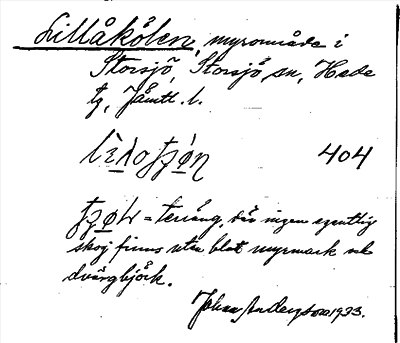 Lillåkölen, myrområde i
Storsjö, Storsjö sn, Hede
tg, Jämtl. l.
404
= terräng, där ingen egentlig
skog finns utan blot myrmark och
dvärgbjörk.
Johan Anderson 1933.